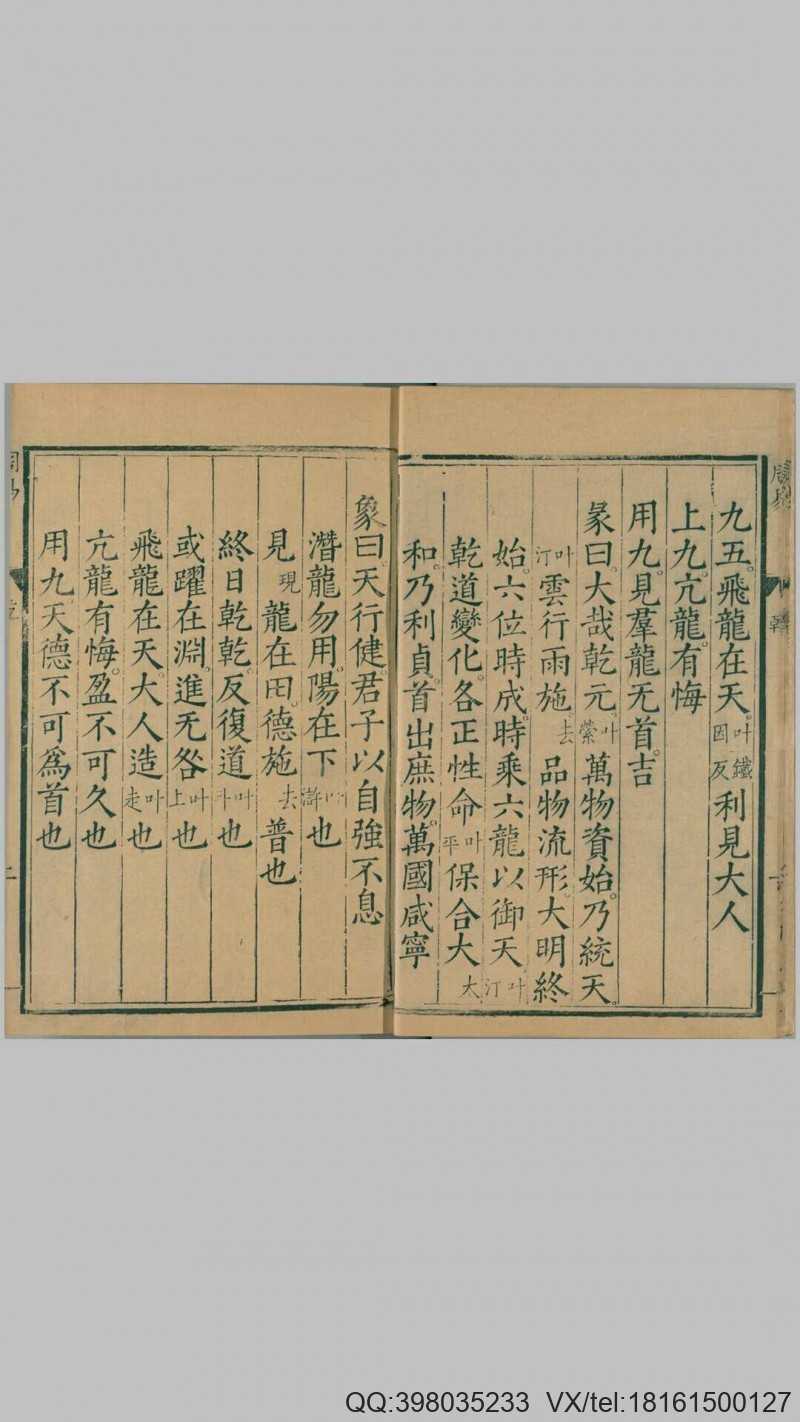 九五。飛龍在天。叶鐵因反利見大人
上九。亢龍。有悔
用九。見羣龍无首。吉
彖曰。大哉乾元。叶縈萬物資始。乃統天。
叶汀雲行雨施去品物流形。大明終
始。六位時成。時乘六龍以御天叶汀
乾道變化。各正性命叶平保合大大
和。乃利貞。首出庶物。萬國咸寧
象曰。天行健。君子以自強不息
潛龍勿用。陽在下叶滸也
見現龍在田。德施去普也
終日乾乾。反復道叶斗也
或躍在淵。進无咎叶上也
飛龍在天。大人造叶走也
亢龍有悔。盈不可久也
用九。天德不可爲首也
QQ:398035233 VX/tel:18161500127